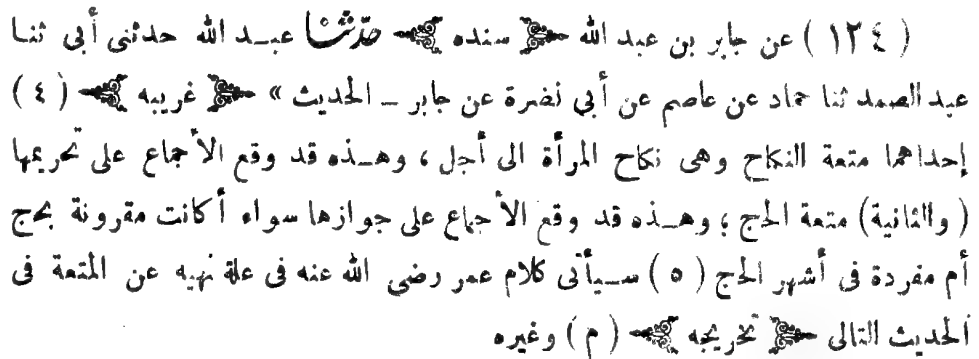 ( ١٢٤ ) عن جابر بن عبد الله ﴿ سنده ﴾ حدّثنا عبد الله حدثنى أبى ثنا
عبد الصمد ثنا حماد عن عاصم عن أبى نضرة عن جابر – الحديث » ﴿ غريبه ﴾ ( ٤ )
إحداهما متعة النكاح وهى نكاح المرأة الى أجل ، وهذه قد وقع الأجماع على تحريمها
( والثانية ) متعة الحج ؛ وهذه قد وقع الأجماع على جوازها سواء أكانت مقرونة بحج
أم مفردة فى أشهر الحج ( ٥ ) سيأتى كلام عمر رضى الله عنه فى علة نهيه عن المتعة فى
الحديث التالى ﴿ تخريجه ﴾ ( م ) وغيره